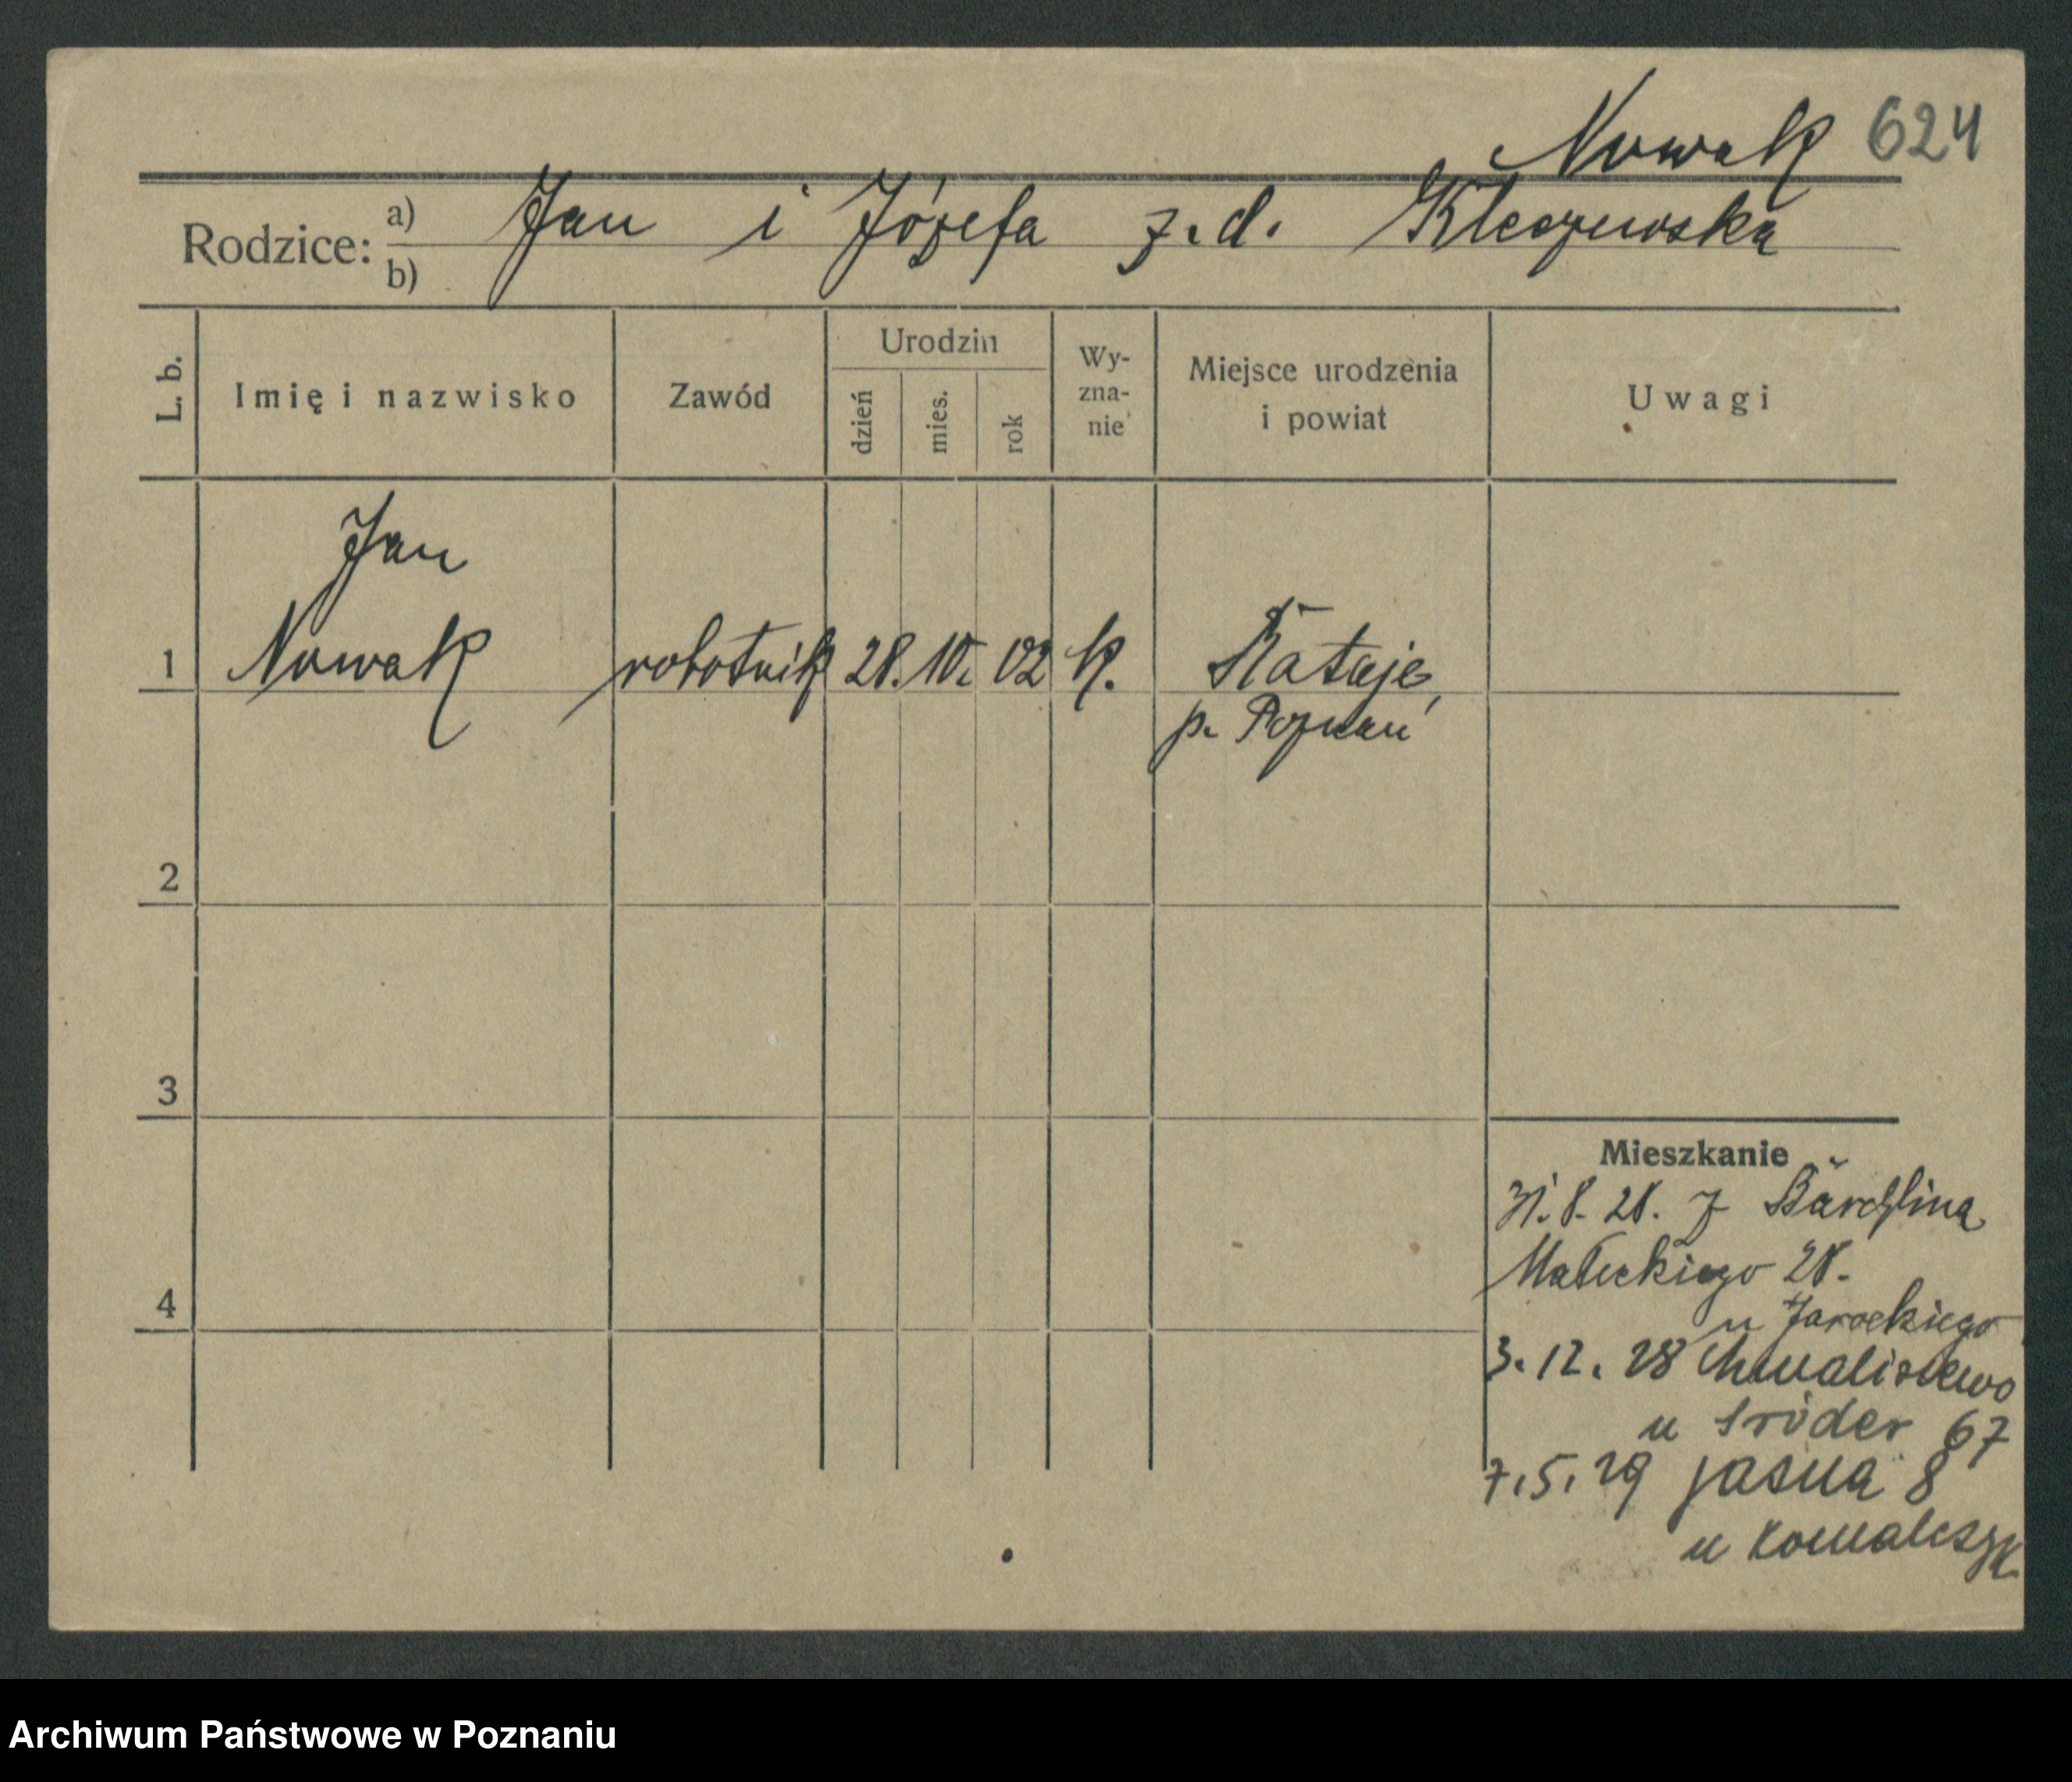 Nowak 624
Rodzice: a) Jan i Józefa z. d. Kleczewska
b)
L. b.
Imię i nazwisko
Zawód
Urodzin
dzień
mies.
rok
Wy-
zna-
nie
Miejsce urodzenia
i powiat
Uwagi
Jan
1 Nowak robotnik 28. 10. 02 k. Rataje,
p. Poznań
2
3
4
Mieszkanie
31. 8. 28. z
Małeckiego 28.
u Jarockiego
3. 12. 28 Chwaliszewo
u Sröder 67
7. 5. 29 Jasna 8
u Kowalczyk
Archiwum Państwowe w Poznaniu